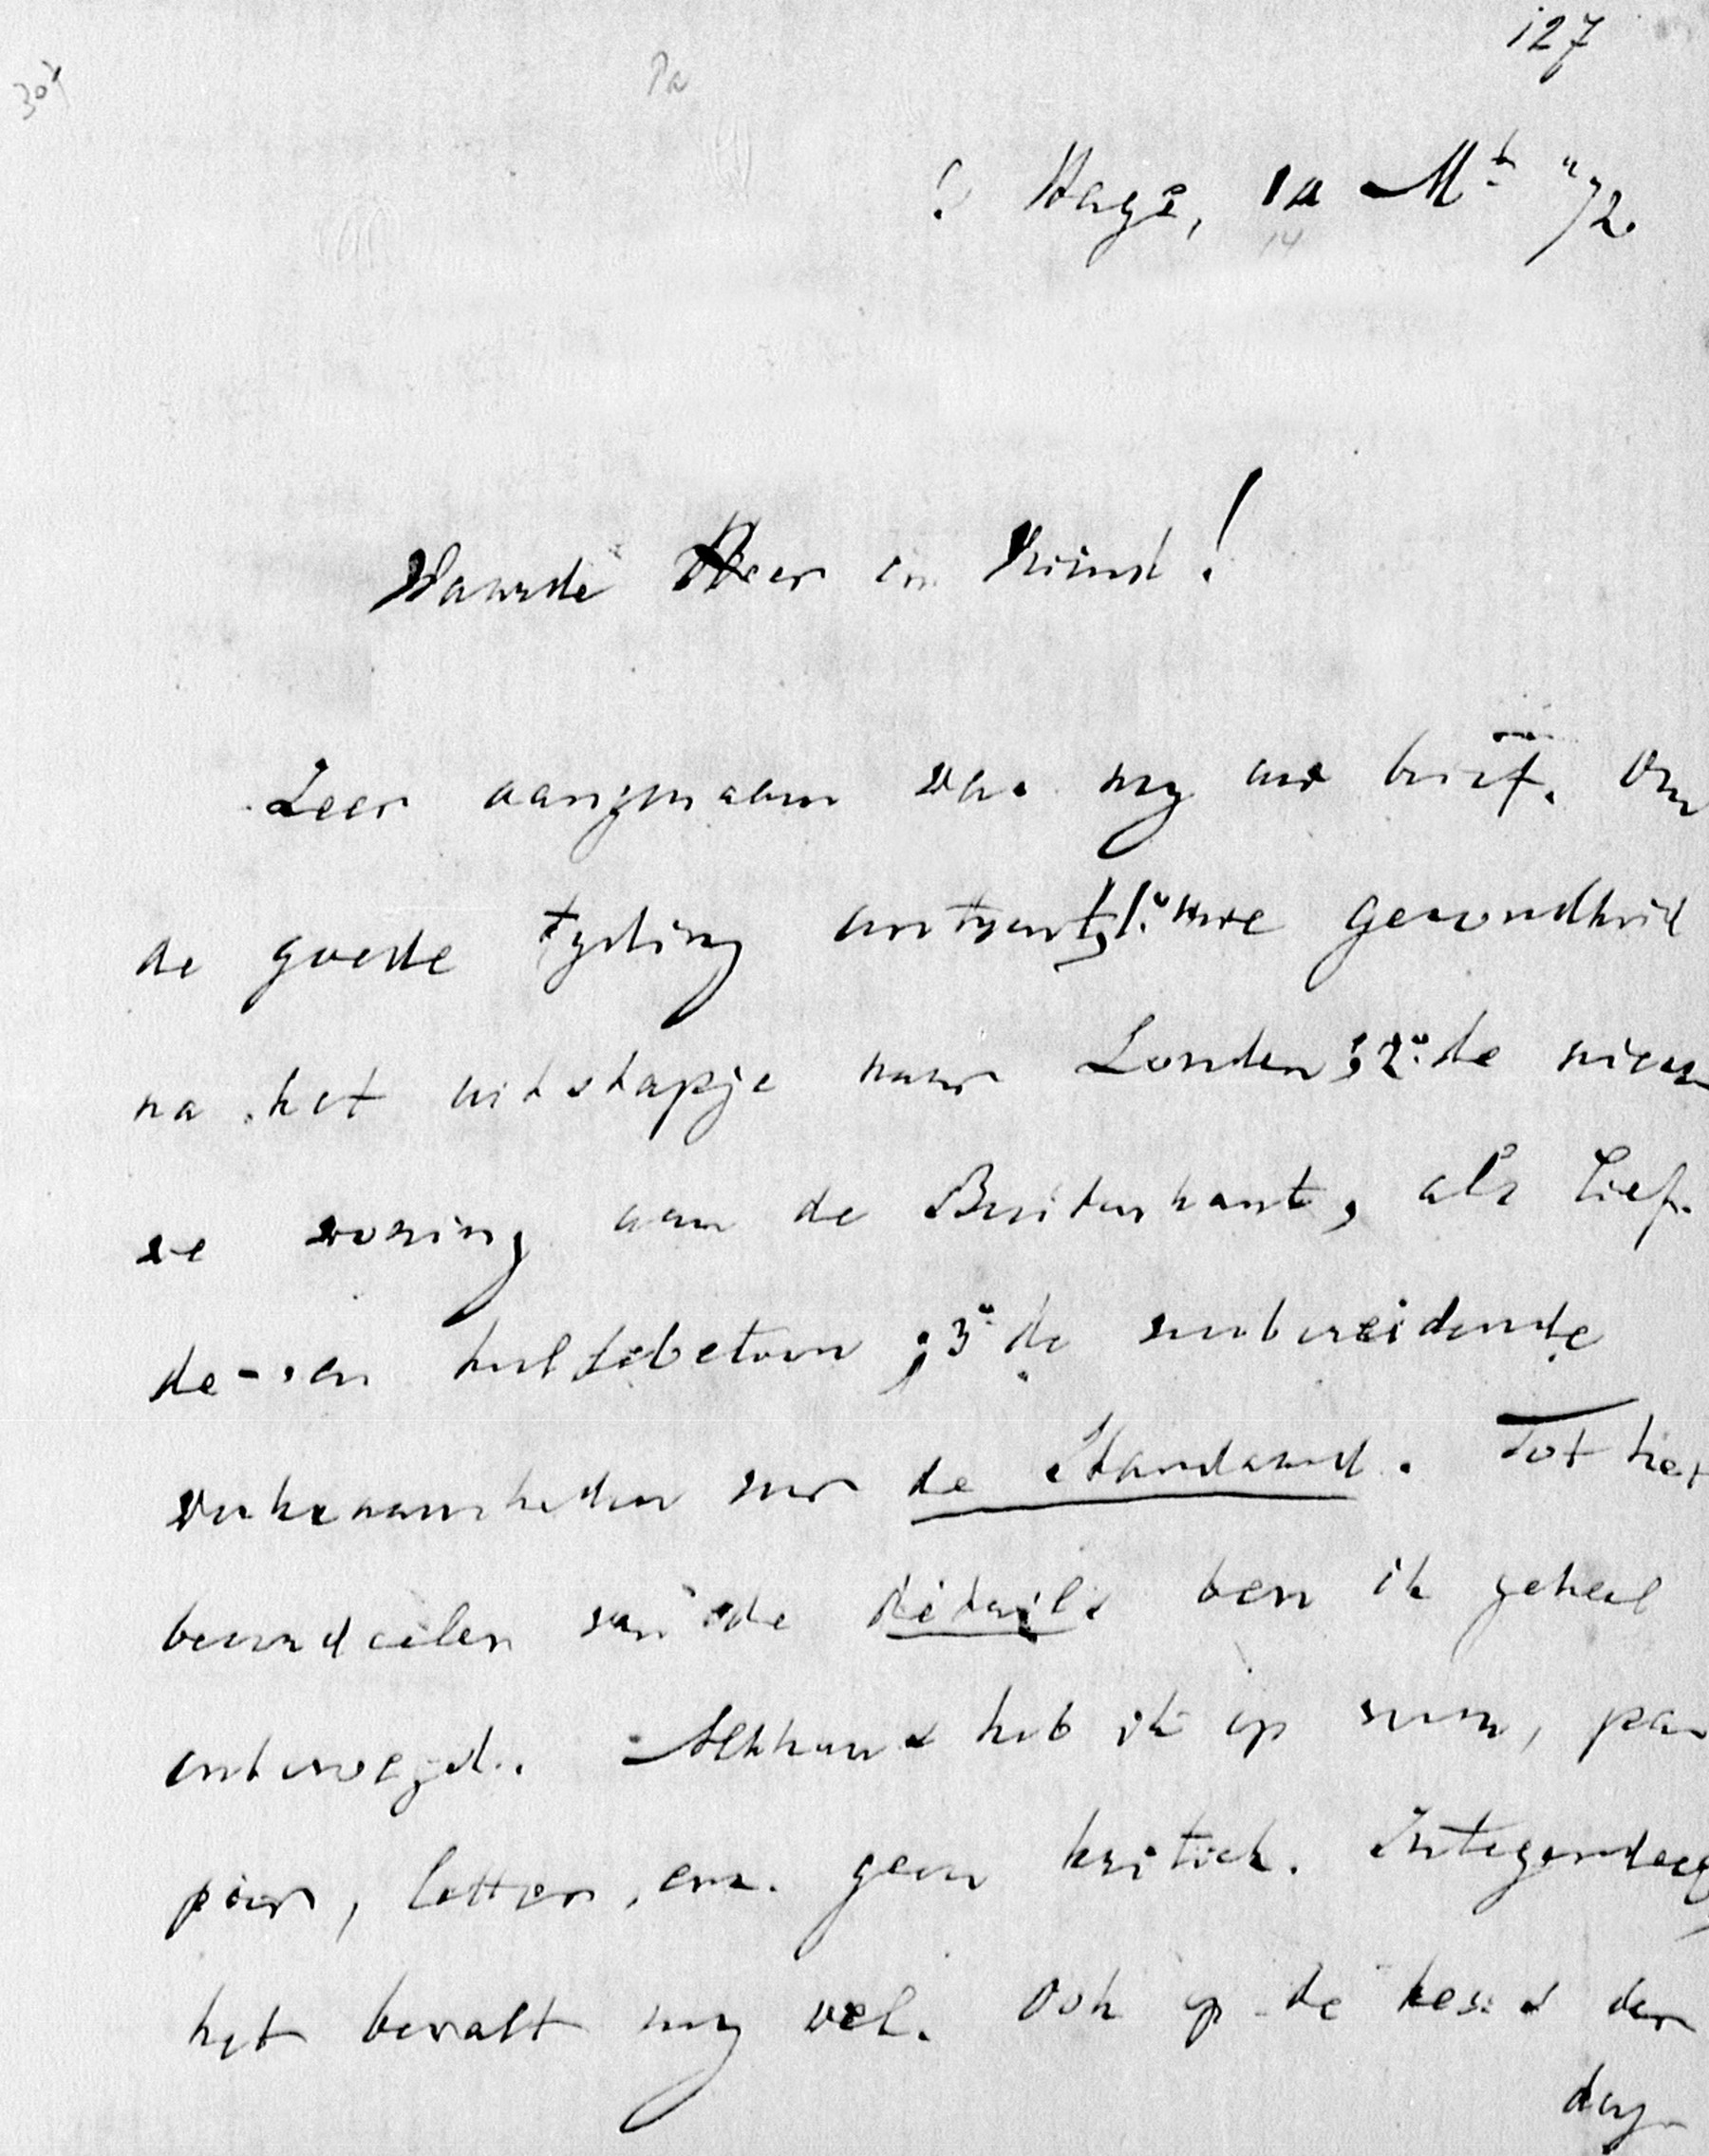 127
307
Pa
's Hage, 14 Mt "/72.
14
Waarde Heer en Vriend!
Zeer aangenaam was my uw brief. Om
de goede tyding omtrent, 1o. uwe gezondheid
na het uitstapje naar Londen; 2o. de nieu
we woning aan de Buitenkant, als lief-
de- en hulpbetoon; 3o. de voorbereidende
werkzaamheden voor de Standaard. Tot het
beoordeelen van de détails ben ik geheel
onbevoegd. Althans heb ik op vorm, pa
pier, letter, enz. geen kritiek. Integendeel,
het bevalt my wel. Ook op de keus der
dag-